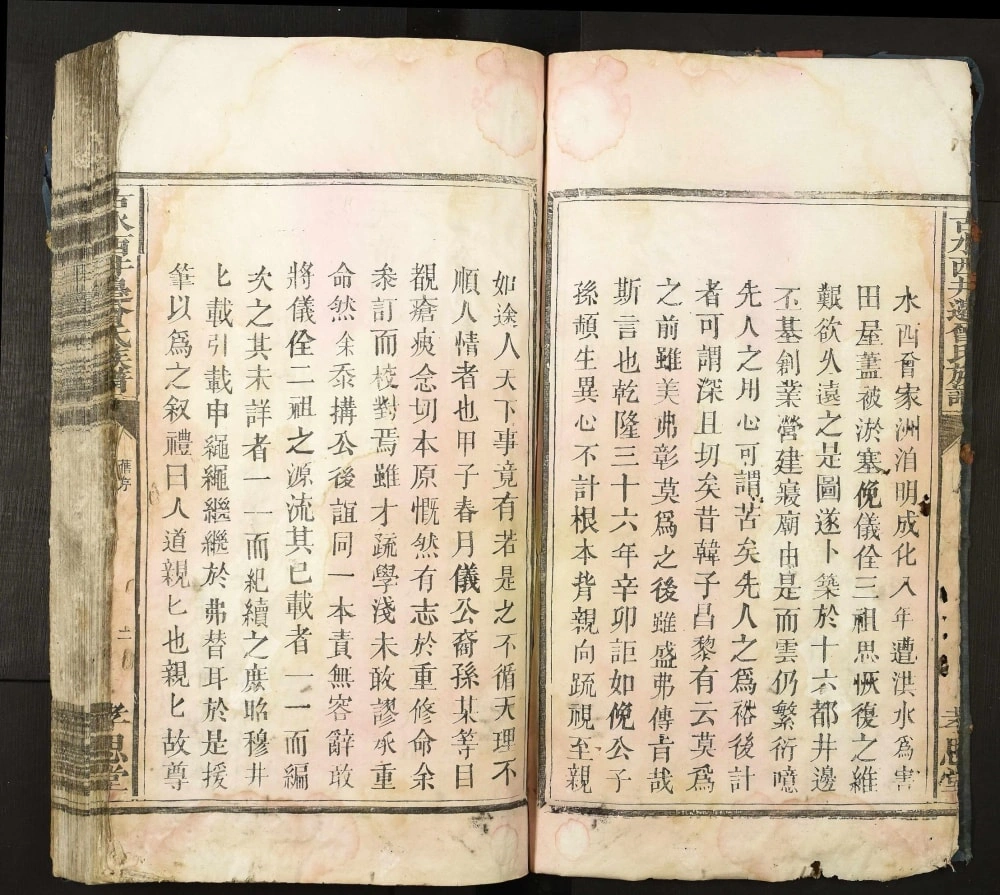 古水西井邊曾氏族譜
孝思堂
水西曾家洲洎明成化八年遭洪水為害
田屋蓋被淤塞俛儀佺三祖思恢復之維
艱欲久遠之是圖遂卜築於十六都井邊
丕基創業營建寢廟由是而雲仍繁衍噫
先人之用心可謂苦矣先人之為裕後計
者可謂深且切矣昔韓子昌黎有云莫為
之前雖美弗彰莫為之後雖盛弗傳旨哉
斯言也乾隆三十六年辛卯詎如俛公子
孫頡生異心不計根本背親向疏視至親
如途人天下事竟有若是之不循天理不
順人情者也甲子春月儀公裔孫某等目
覩瘡痍念切本原慨然有志於重修命余
叅訂而校對焉雖才疏學淺未敢謬承重
命然余忝搆公後誼同一本責無容辭敢
將儀佺二祖之源流其已載者一一而編
次之其未詳者一一而紀續之庶昭穆井
匕載引載申繩繩繼繼於弗替耳於是援
筆以為之叙禮曰人道親匕也親匕故尊
古水西井邊曾氏族譜
舊序
二
孝思堂